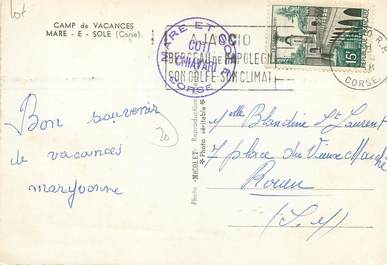 Lot
CAMP de VACANCES
MARE - E - SOLE (Corse).
MARE ET SOLE
COTI
CHIAVARI
CORSE
AJACCIO
BERCEAU DE NAPOLEON
SON GOLFE SON CLIMAT
CORSE
15F
Bon souvenir
de vacances
maryvonne
20
Photo -MACOLET- Reproduction
★ Photo véritable ★
Mlle Blandine St Laurent
7 place du Vieux Marché
Rouen
(S.M)